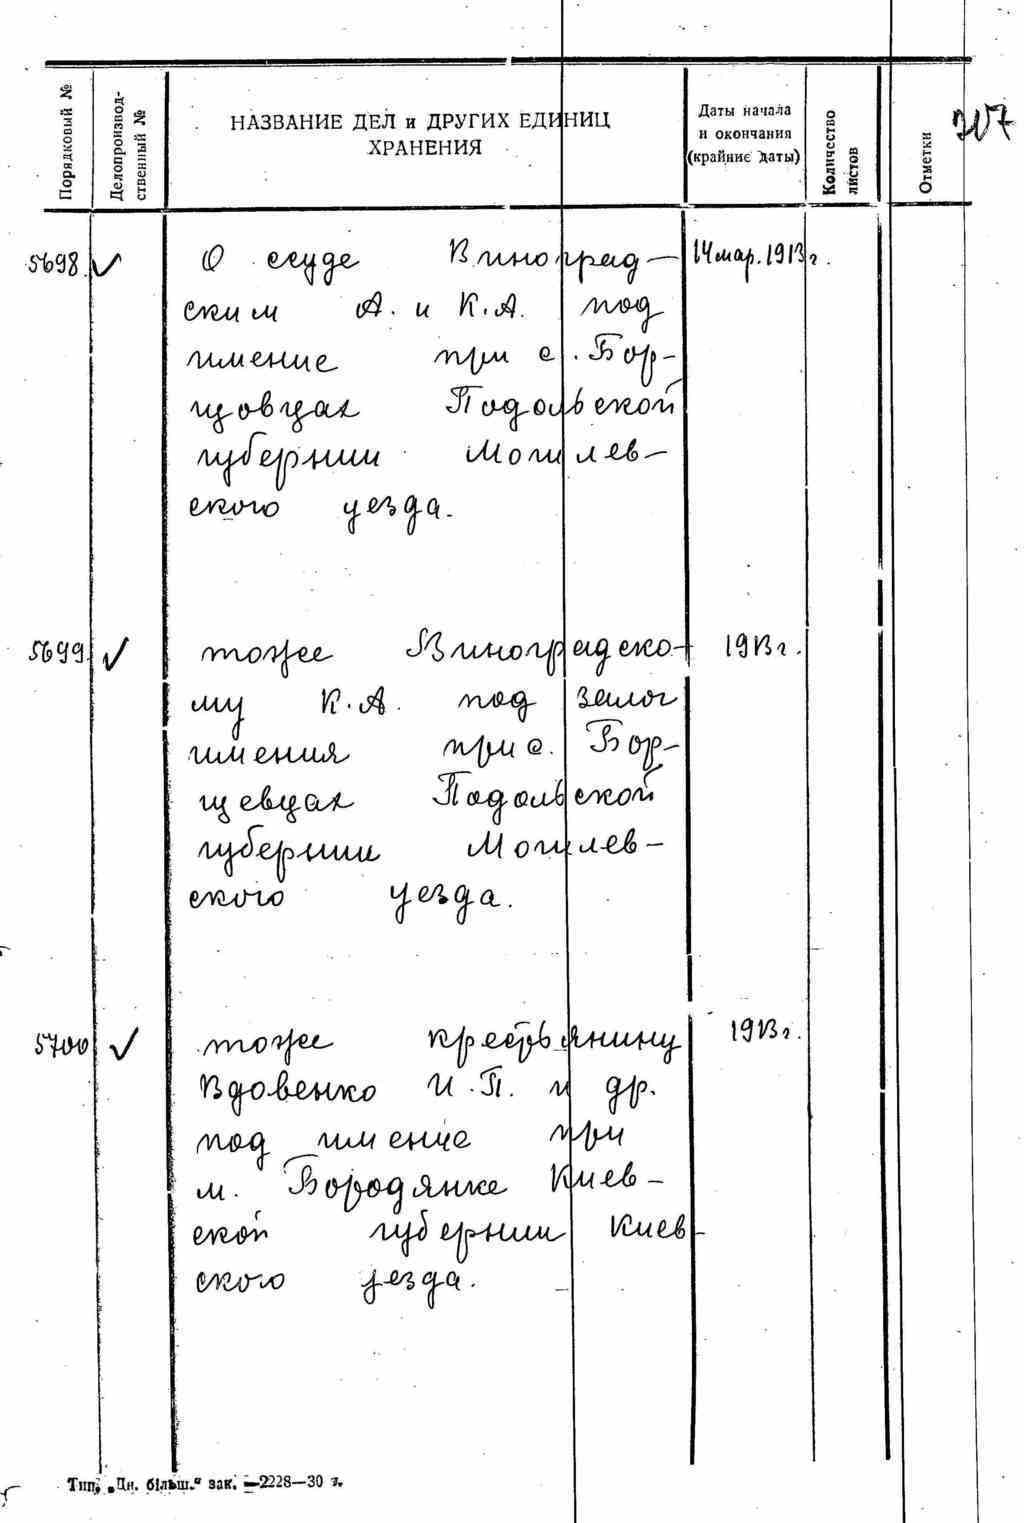 707
Порядковый №
Делопроизвод-
ственный №
НАЗВАНИЕ ДЕЛ и ДРУГИХ ЕДИНИЦ
ХРАНЕНИЯ
Даты начала
и окончания
(крайние даты)
Количество
листов
Отметки
5698. ✓ О ссуде Виноград- 14 мар. 1913 г.
ским А. и К.А. под
имение при с. Бор-
щовцах Подольской
губернии Могилев-
ского уезда.
5699 ✓ тоже Виноградско- 1913 г.
му К.А. под залог
имения при с. Бор-
щевцах Подольской
губернии Могилев-
ского уезда.
5700 ✓ тоже крестьянину 1913 г.
Вдовенко И.П. и др.
под имение при
м. Бородянке Киев-
ской губернии Киев-
ского уезда.
Тип. „Цн. більш.“ зак. —2228—30 т.